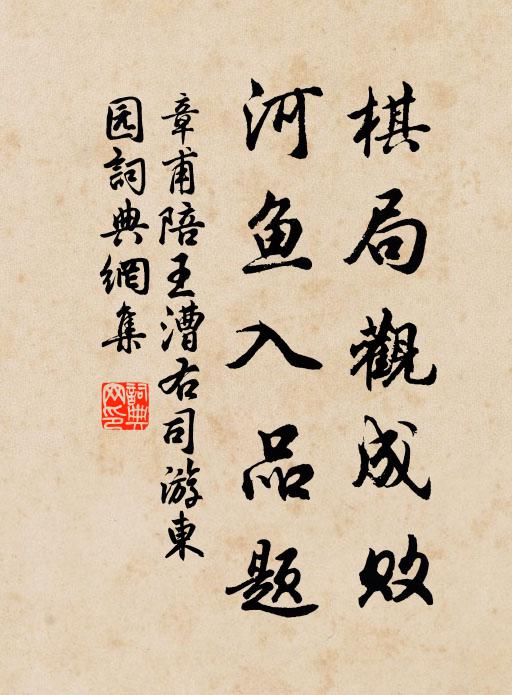 棋局觀成败
河鱼入品题
章甫陪王漕右司游東
园詞典網集
詞典网印